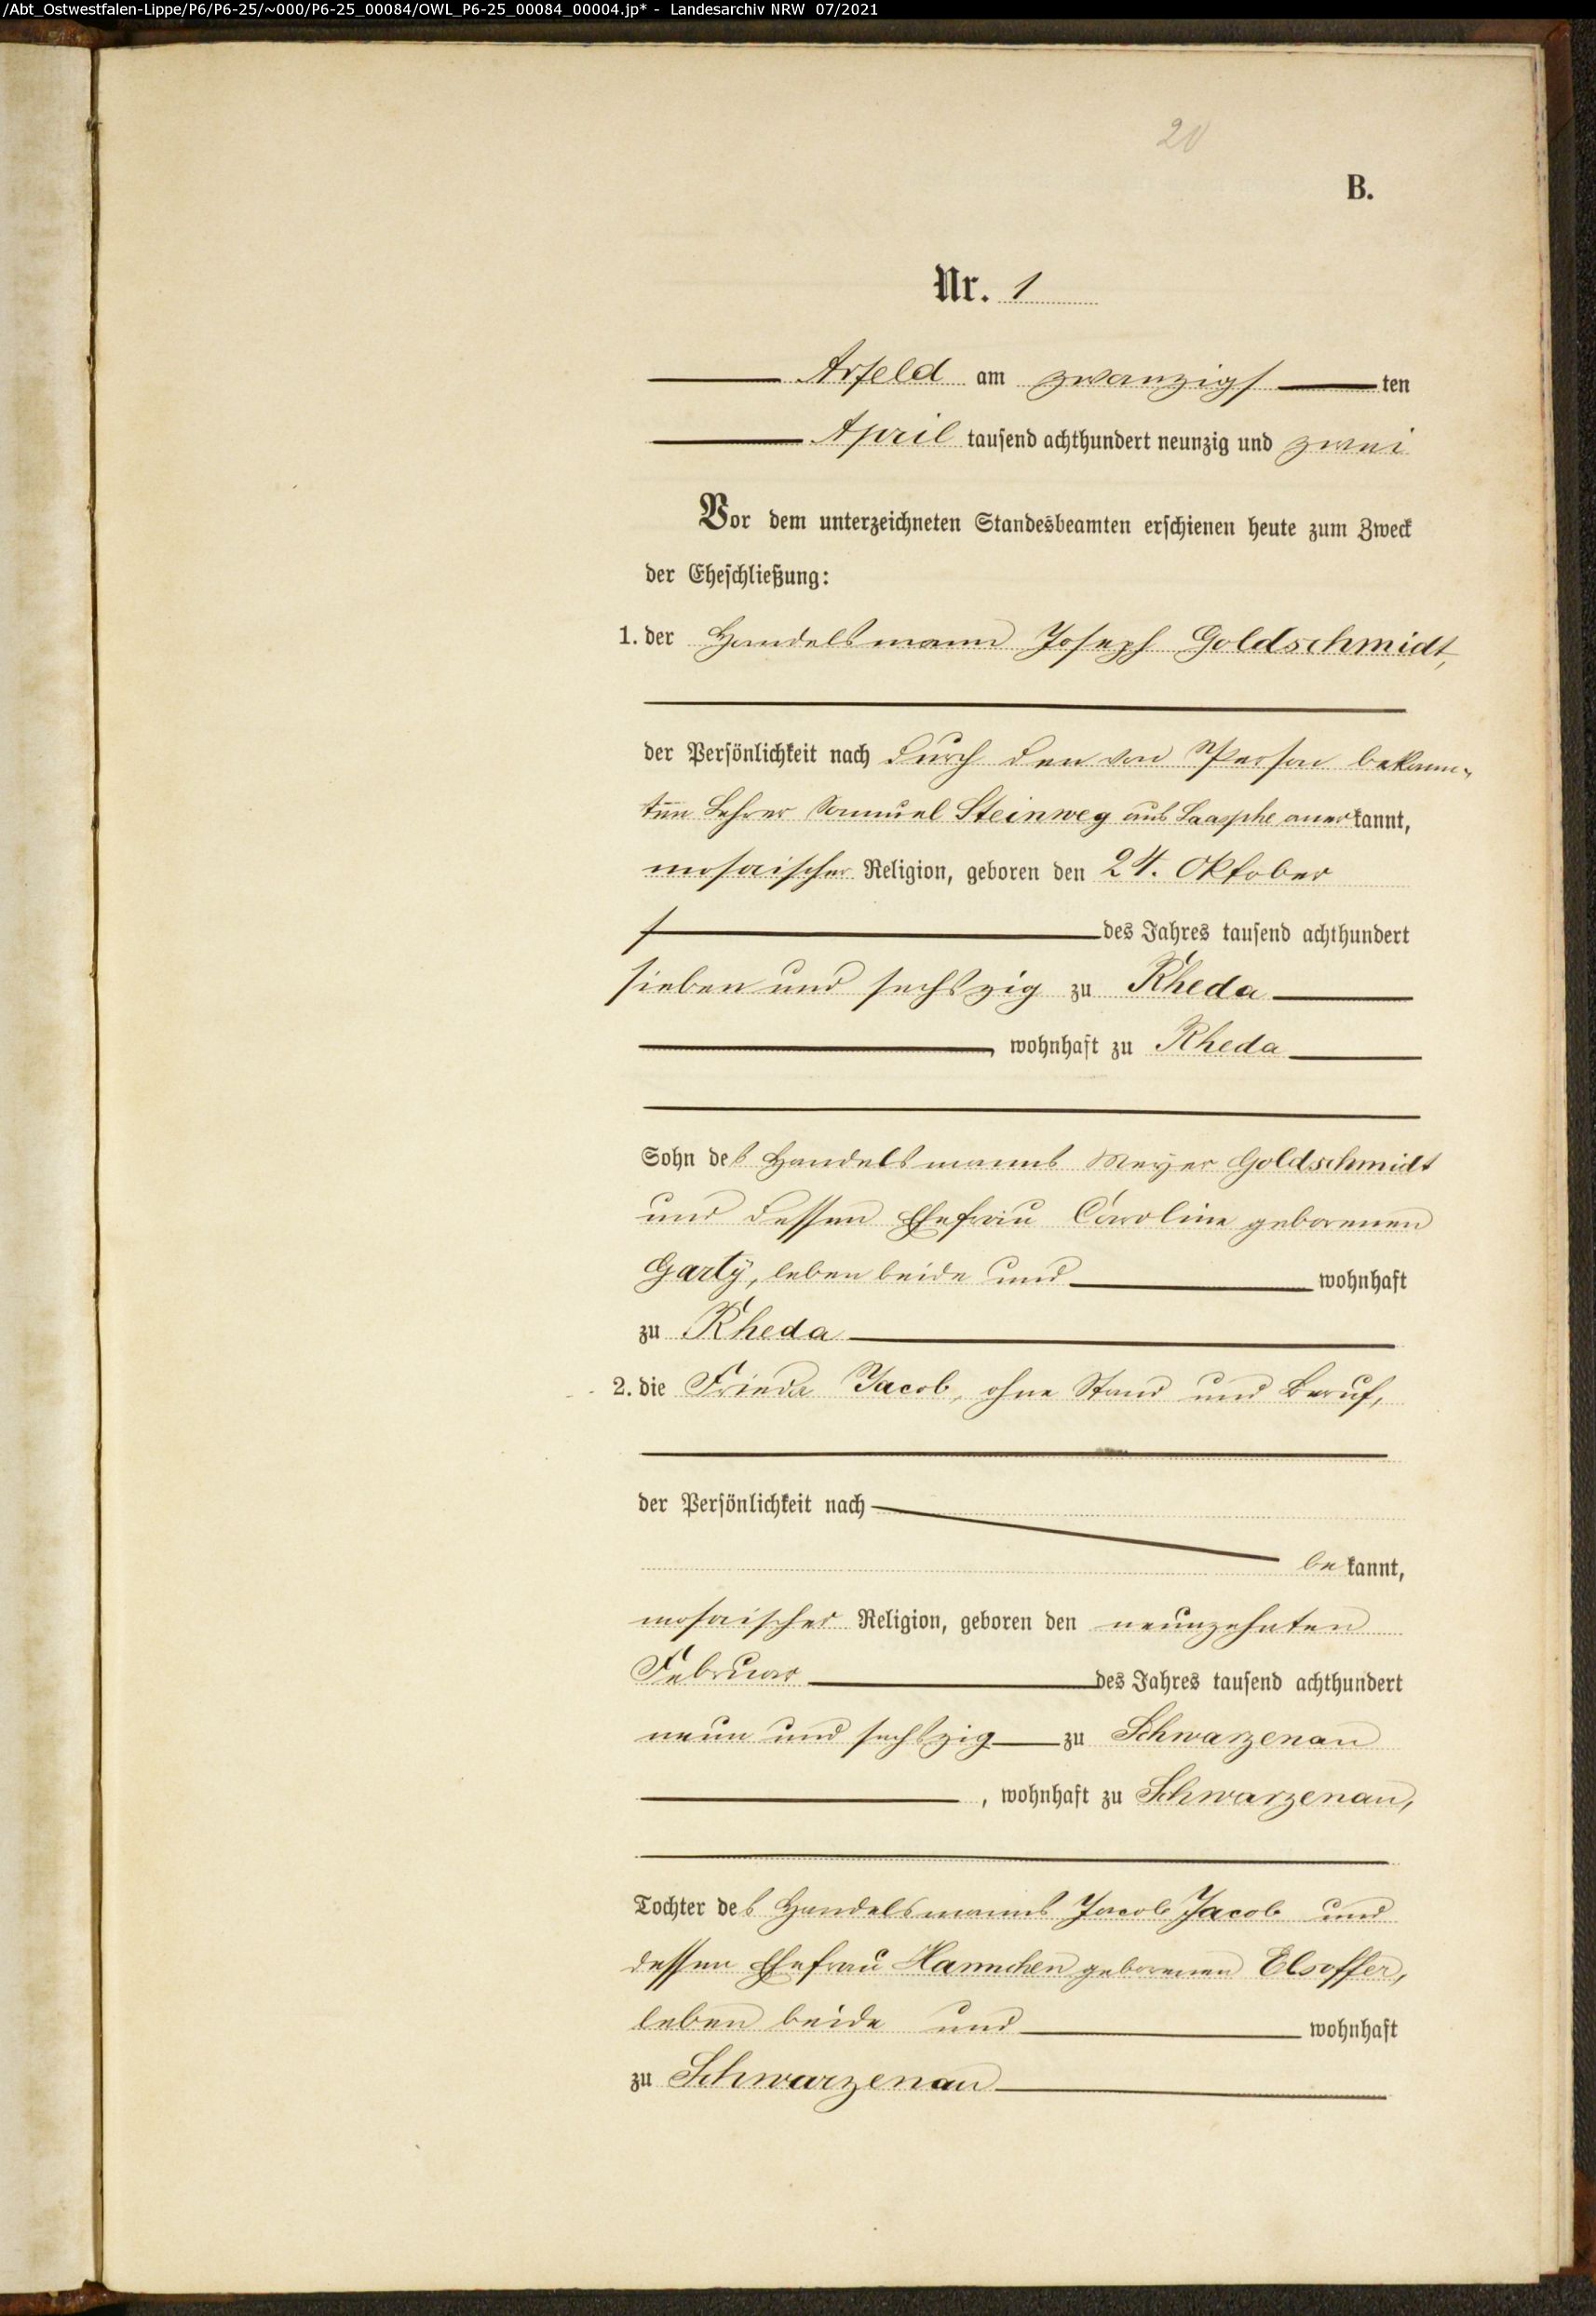 /Abt_Ostwestfalen-Lippe/P6/P6-25/~000/P6-25_00084/OWL_P6-25_00084_00004.jp* - Landesarchiv NRW 07/2021
20
B.
Nr. 1
Arfeld am zwanzigsten
April tausend achthundert neunzig und zwei
Vor dem unterzeichneten Standesbeamten erschienen heute zum Zweck
der Eheschließung:
1. der Handelsmann Joseph Goldschmidt,
der Persönlichkeit nach durch den von Person bekann-
ten Lehrer Samuel Steinweg aus Laasphe anerkannt,
mosaischer Religion, geboren den 24. Oktober
des Jahres tausend achthundert
sieben und sechszig zu Rheda
, wohnhaft zu Rheda
Sohn des Handelsmanns Meyer Goldschmidt
und dessen Ehefrau Caroline geborenen
Garty, leben beide und wohnhaft
zu Rheda
2. die Frieda Jacob, ohne Stand und Beruf,
der Persönlichkeit nach
bekannt,
mosaischer Religion, geboren den neunzehnten
Februar des Jahres tausend achthundert
neun und sechszig zu Schwarzenau
, wohnhaft zu Schwarzenau,
Tochter des Handelsmanns Jacob Jacob und
dessen Ehefrau Hannchen geborenen Elsoffer,
leben beide und wohnhaft
zu Schwarzenau